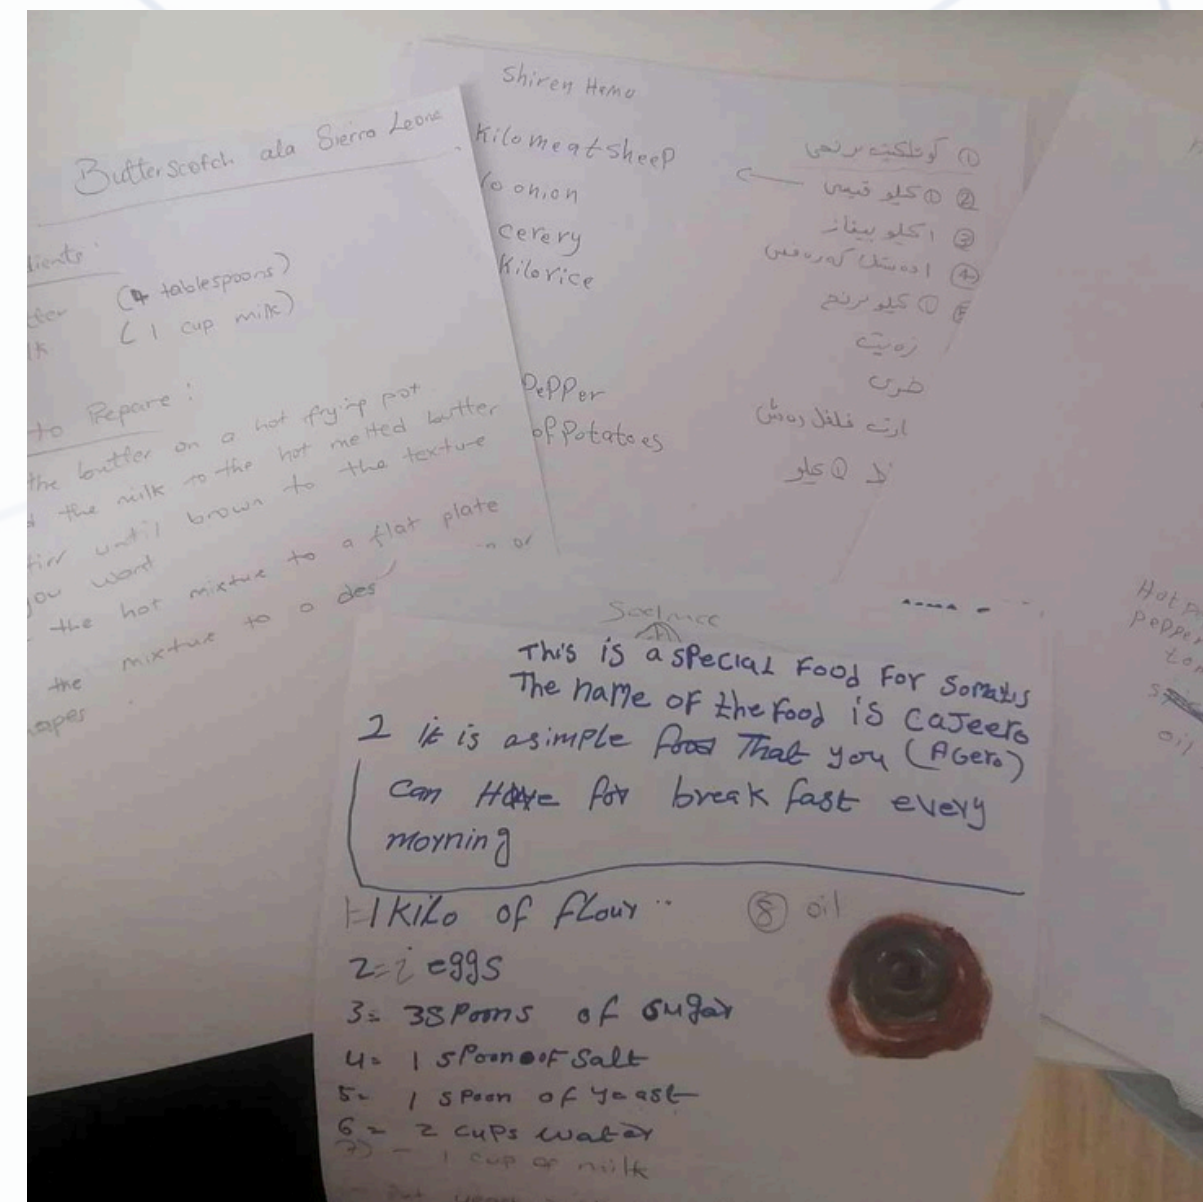 Butterscotch ala Sierra Leone
(4 tablespoons)
(1 cup milk)
to Prepare:
the butter on a hot frying pot
the milk to the hot melted butter
until brown to the texture
you want
the hot mixture to a flat plate
or
the mixture to a des
Shiren Hemo
Kilo meat sheep
onion
cerery
Kilo rice
PePPer
of Potatoes
① كوتلكيت برنجى
② ① كيلو قيمى
③ ١ كيلو بيفاز
④
⑤ ① كيلو برنج
زەيت
خرى
ارت فلفل رەش
① كيلو
Hot
Peppe
oil
This is a SPecial Food For Somalis
The name OF the Food iS CaJeero
2 it is a simPle food That you (AGero)
can Have for break fast every
morning
1=1 KiLo of flour
⑧ oil
2= eggs
3= 3 SPoons of Sugar
4= 1 sPoon of Salt
5= 1 sPoon of yeast
6= 2 cuPs water
7) - 1 cup of milk